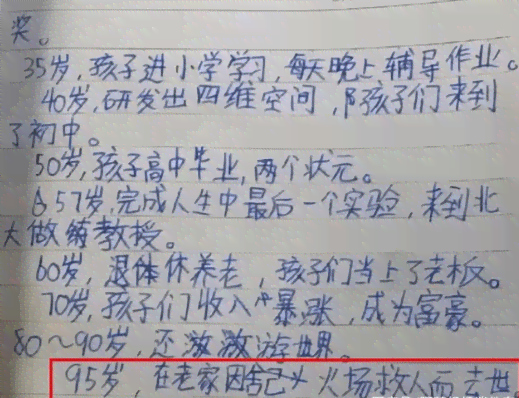 奖。
35岁,孩子进小学学习,每天晚上辅导作业。
40岁,研发出四维空间,陪孩子们来到
了初中。
50岁,孩子高中毕业,两个状元。
57岁,完成人生中最后一个实验,来到北
大做教授。
60岁,退休养老,孩子们当上了老板。
70岁,孩子们收入暴涨,成为富豪。
80~90岁,还游世界。
95岁,在老家因舍己火场救人而去世